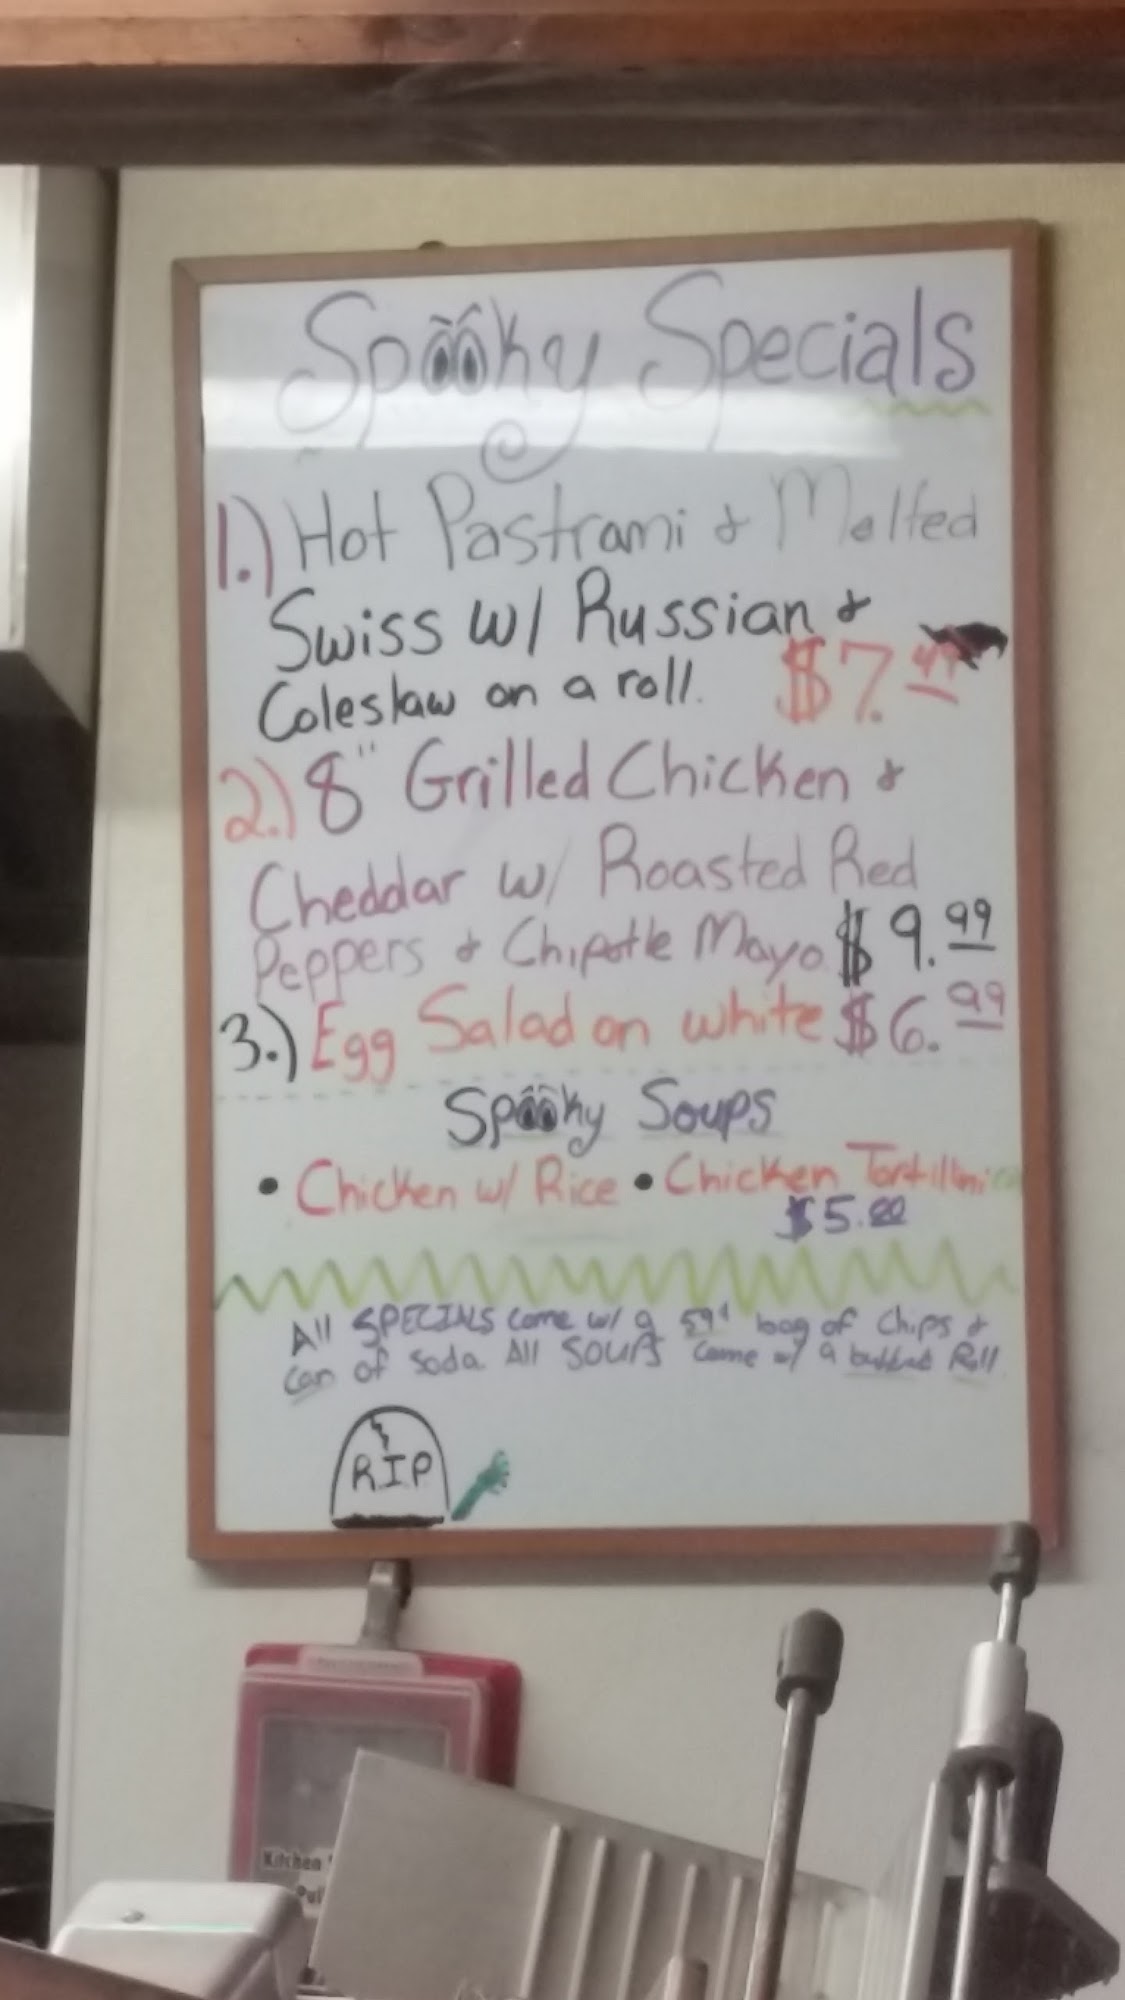 Spooky Specials
1.) Hot Pastrami & Melted
Swiss w/ Russian &
Coleslaw on a roll. $7.49
2.) 8" Grilled Chicken &
Cheddar w/ Roasted Red
Peppers & Chipotle Mayo $9.99
3.) Egg Salad on white $6.99
Spooky Soups
• Chicken w/ Rice • Chicken
$5.00
All SPECIALS come w/ a 59¢ bag of Chips &
can of Soda. All SOUPS come w/ a buttered Roll.
R.I.P
Kitchen